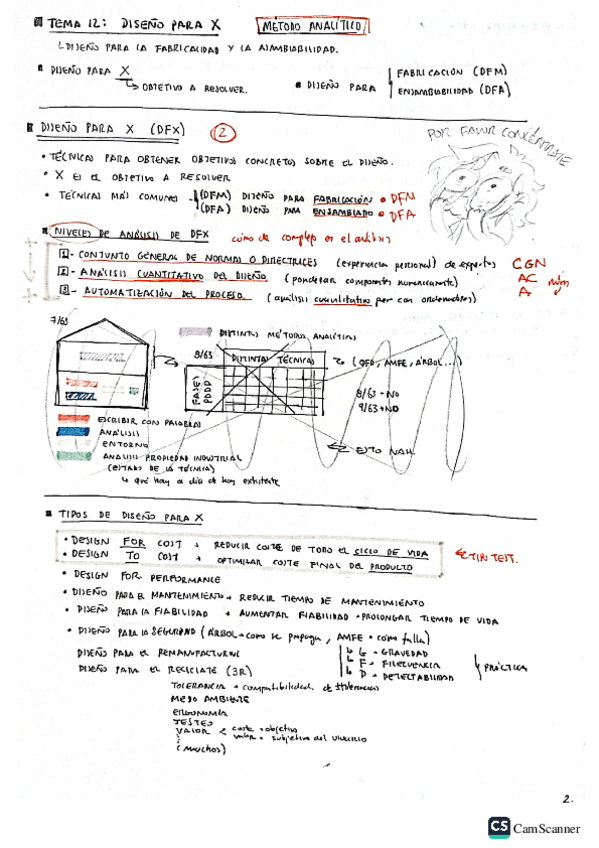 TEMA 12: DISEÑO PARA X
MÉTODO ANALÍTICO
DISEÑO PARA LA FABRICALIDAD Y LA
DISEÑO PARA X
OBJETIVO A RESOLVER.
DISEÑO PARA
FABRICACIÓN (DFM)
ENSAMBIABILIDAD (DFA)
DISEÑO PARA X (DFX)
2
POR FAVOR CONCÉNTRATE
• TÉCNICAS PARA OBTENER OBJETIVOS CONCRETOS SOBRE EL DISEÑO.
• X ES EL OBJETIVO A RESOLVER
• TÉCNICAS MÁS COMUNES
(DFM) DISEÑO PARA FABRICACIÓN • DFM
(DFA) DISEÑO PARA ENSAMBLADO • DFA
NIVELES DE ANÁLISIS DE DFX
cómo de complejo es el análisis
1- CONJUNTO GENERAL DE NORMAS O DIRECTRICES (experiencia personal) de expertos CGN
2- ANÁLISIS CUANTITATIVO DEL DISEÑO (ponderar componentes numéricamente) AC
3- AUTOMATIZACIÓN DEL PROCESO. (análisis cuantitativo por con ordenadores) A
7/63
DISTINTOS MÉTODOS ANALÍTICOS
8/63
DISTINTAS TÉCNICAS
(QFD, AMFE, ARBOL...)
FASES
PDDD
8/63 - NO
9/63 - NO
ESTO NAH.
ESCRIBIR CON PALABRAS
ANÁLISIS
ENTORNO
ANÁLISIS PROPIEDAD INDUSTRIAL
(ESTADO DE LA TÉCNICA)
qué hay a día de hoy existente
TIPOS DE DISEÑO PARA X
• DESIGN FOR COST → REDUCIR COSTE DE TODO EL CICLO DE VIDA
• DESIGN TO COST → OPTIMIZAR COSTE FINAL DEL PRODUCTO
TIP TEST.
• DESIGN FOR PERFORMANCE
• DISEÑO PARA EL MANTENIMIENTO → REDUCIR TIEMPO DE MANTENIMIENTO
• DISEÑO PARA LA FIABILIDAD → AUMENTAR FIABILIDAD - PROLONGAR TIEMPO DE VIDA
• DISEÑO PARA LA SEGURIDAD (ÁRBOL → como se propaga, AMFE → como falla)
G - GRAVEDAD
F - FRECUENCIA
D - DETECTABILIDAD
PRÁCTICA
DISEÑO PARA EL REMANUFACTURING
DISEÑO PARA EL RECICLATE (3R)
TOLERANCIA → compatibilidad de tolerancias
MEDIO AMBIENTE
ERGONOMÍA
TESTEO
VALOR < coste → objetivo
valor → subjetivo del usuario
(MUCHOS)
2.
CS CamScanner